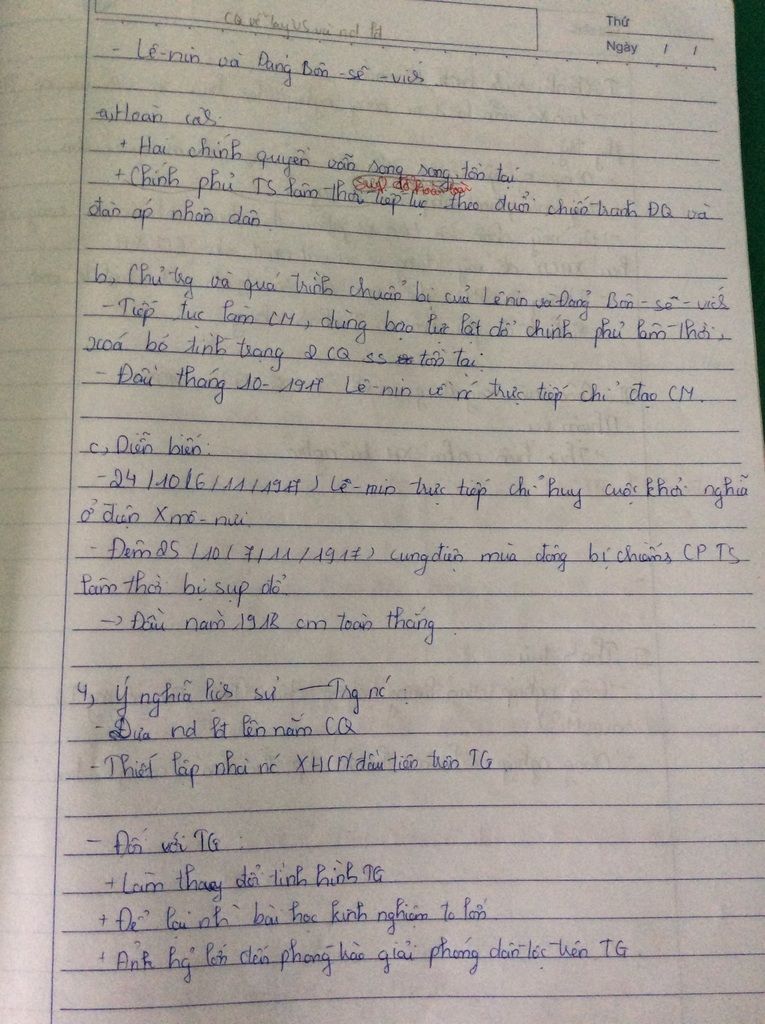 CQ về tay VS và nd lđ
Thứ
Ngày / /
- Lê-nin và Đảng Bôn-sê-vích
a, Hoàn cảnh
+ Hai chính quyền vẫn song song tồn tại
sụp đổ hoàn toàn
+ Chính phủ TS lâm thời tiếp tục theo đuổi chiến tranh ĐQ và
đàn áp nhân dân.
b, Chủ trg và quá trình chuẩn bị của Lênin và Đảng Bôn-sê-vích
- Tiếp tục làm CM, dùng bạo lực lật đổ chính phủ lâm thời,
xoá bỏ tình trạng 2 CQ ss tồn tại.
- Đầu tháng 10-1917 Lê-nin về nc trực tiếp chỉ đạo CM.
c, Diễn biến:
- 24/10 (6/11/1917) Lê-nin trực tiếp chỉ huy cuộc khởi nghĩa
ở điện Xmô-nưi.
- Đêm 25/10 (7/11/1917) cung điện mùa đông bị chiếm, CP TS
lâm thời bị sụp đổ.
-> Đầu năm 1918 cm toàn thắng.
4, Ý nghĩa lịch sử — Trg nc:
- Đưa nd lđ lên nắm CQ
- Thiết lập nhà nc XHCN đầu tiên trên TG.
- Đối với TG:
+ Làm thay đổi tình hình TG
+ Để lại nh` bài học kinh nghiệm to lớn.
+ Ảnh hg lớn đến phong trào giải phóng dân tộc trên TG.